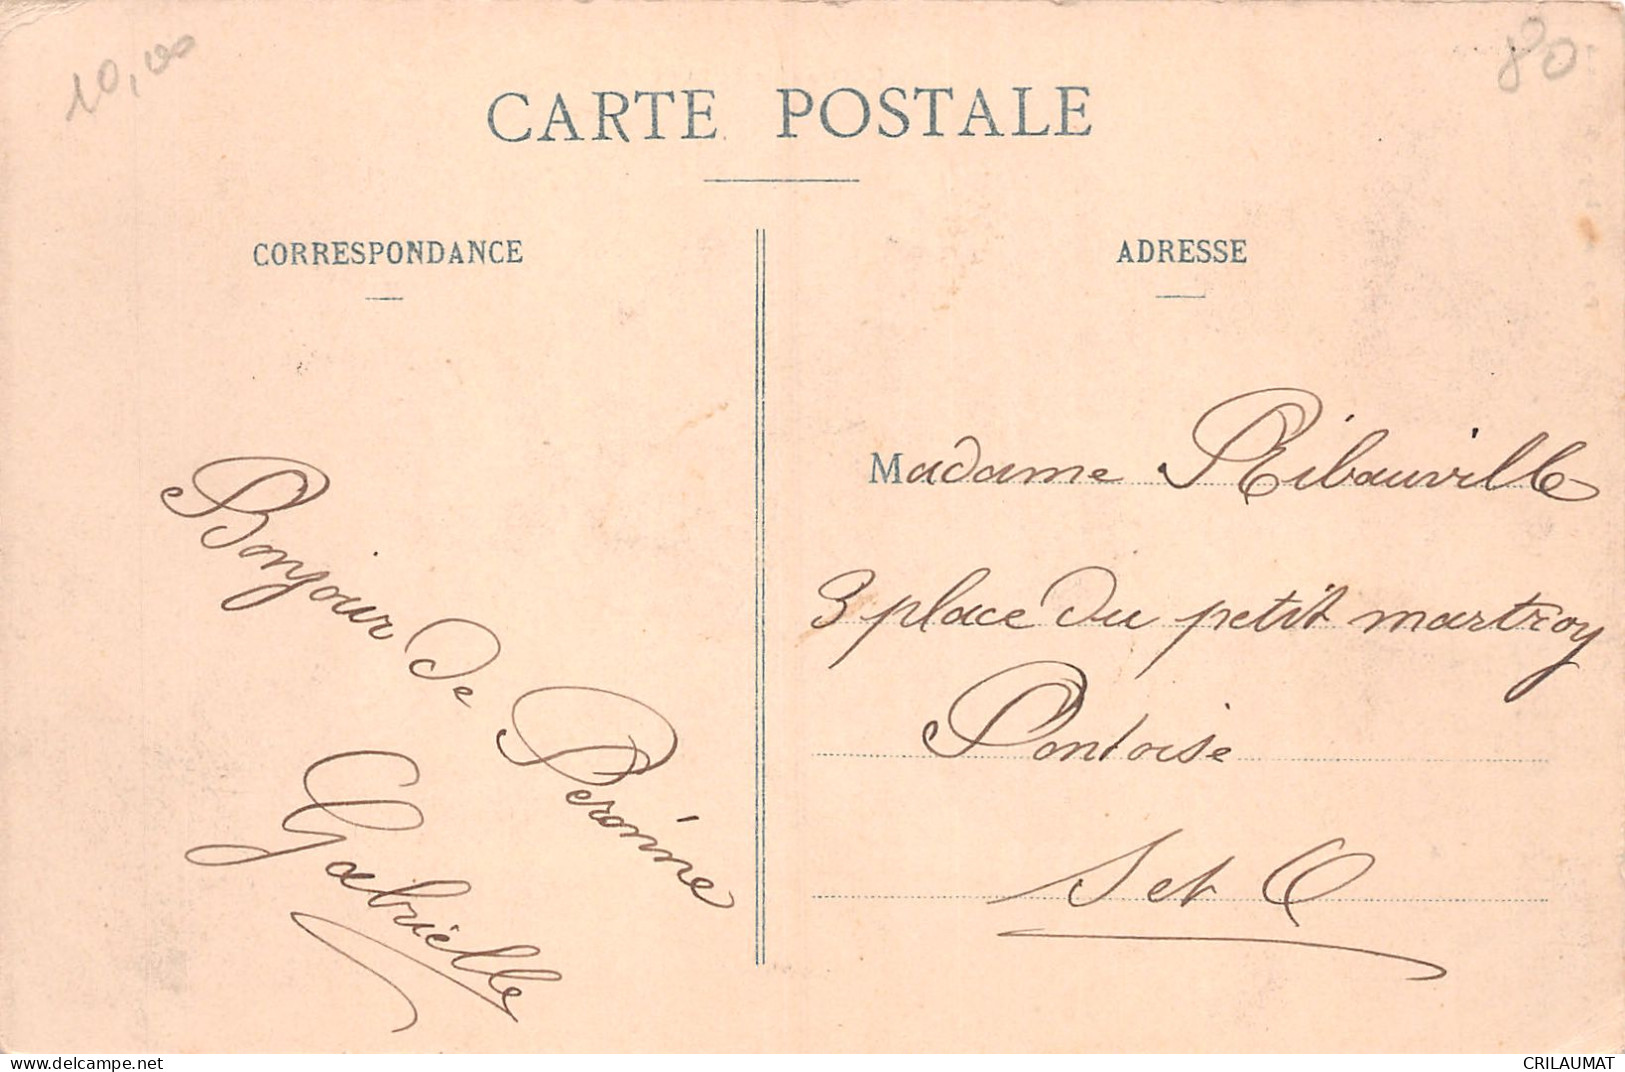 10,00
80
CARTE POSTALE
CORRESPONDANCE
ADRESSE
Bonjour de Peronne
Gabrielle
Madame Ribauville
3 place du petit martroy
Pontoise
S et O
www.delcampe.net
CRILAUMAT